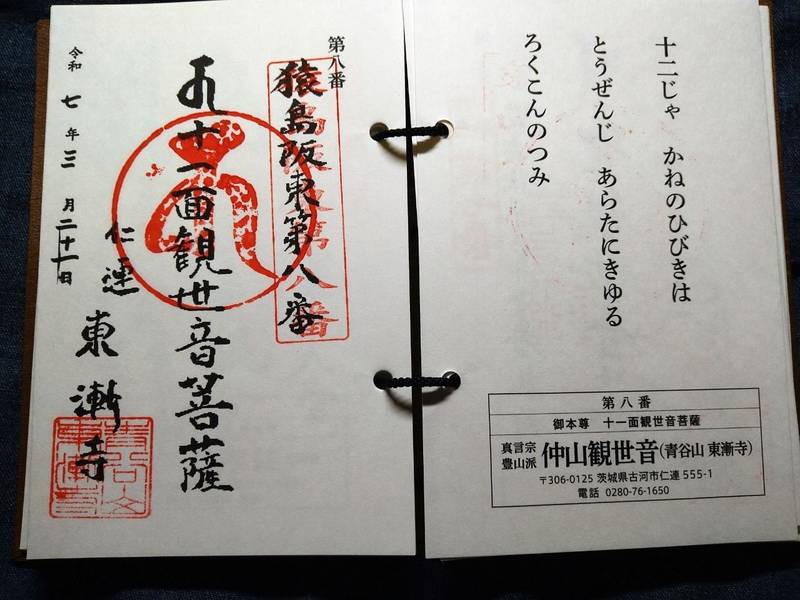 十二じゃ　かねのひびきは
とうぜんじ　あらたにきゆる
ろくこんのつみ
第八番
御本尊　十一面観世音菩薩
真言宗
豊山派
仲山観世音(青谷山 東漸寺)
〒306-0125 茨城県古河市仁連 555-1
電話 0280-76-1650
第八番
猿島阪東第八番
十一面観世音菩薩
仁連 東漸寺
令和七年三月二十一日